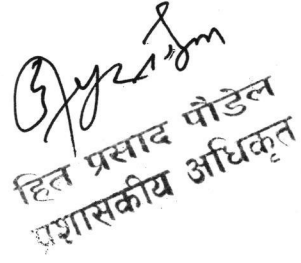 हित प्रसाद पौडेल
प्रशासकीय अधिकृत